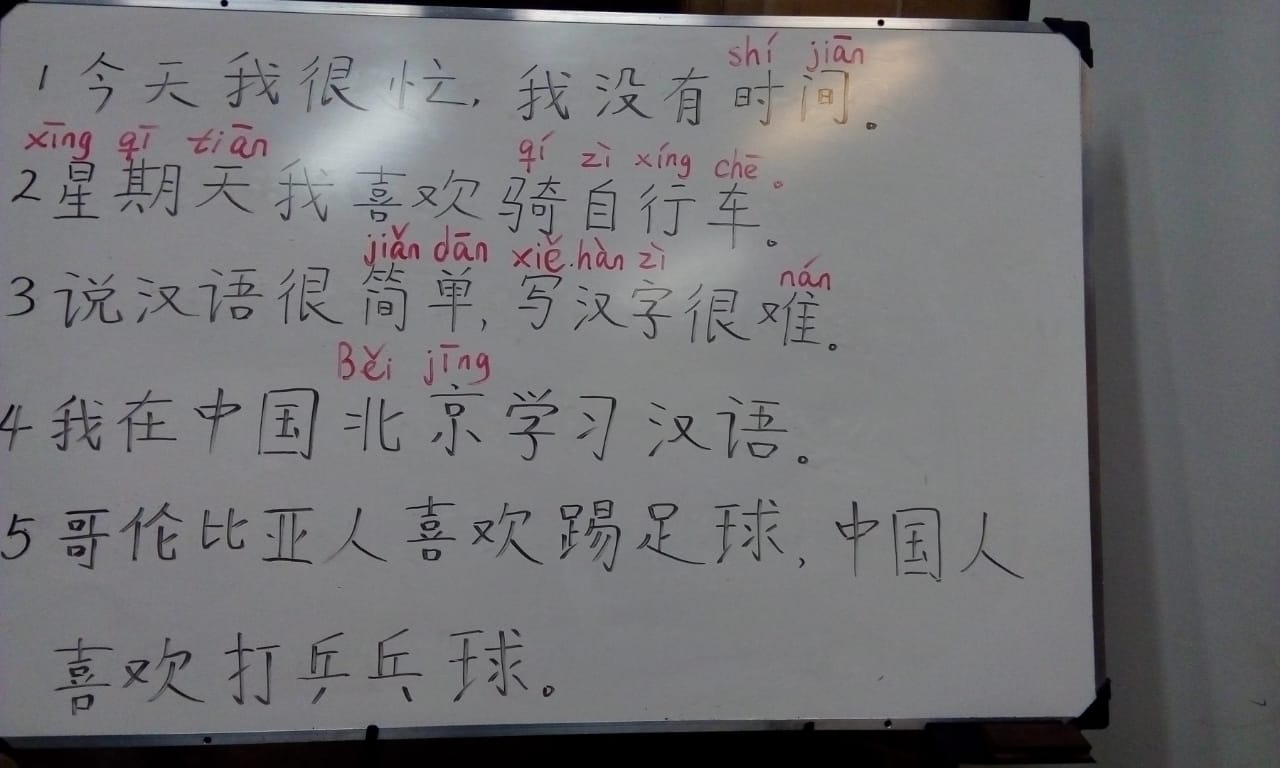 shí jiān
1 今天我很忙, 我没有时间。
xīng qī tiān qí zì xíng chē。
2 星期天我喜欢骑自行车。
jiǎn dān xiě hàn zì nán
3 说汉语很简单, 写汉字很难。
Běi jīng
4 我在中国北京学习汉语。
5 哥伦比亚人喜欢踢足球, 中国人
喜欢打乒乓球。